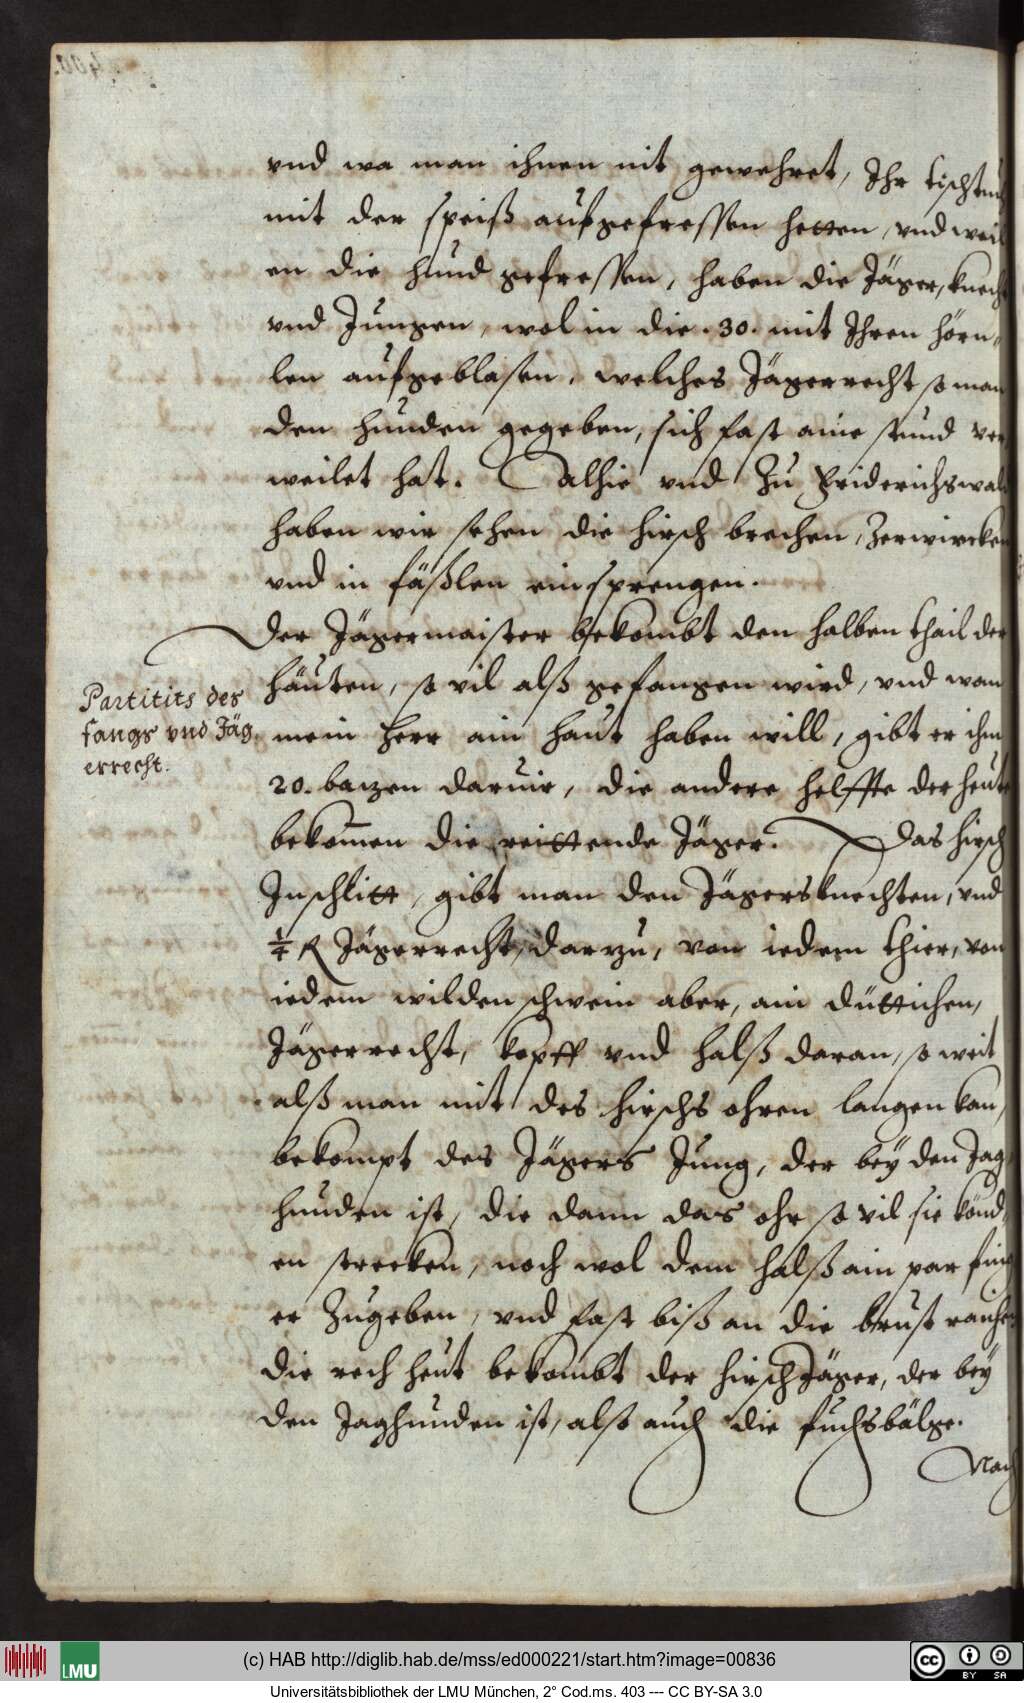 vnd wa man ihnen nit gewehret, Ihr tischtuch
mit der speiß aufgefressen hetten, vnd weil
en die hund gefressen, haben die Jäger, knecht
vnd Jungen, wol in die .30. mit Ihren hörn,
len aufgeblasen, welches Jägerrecht so man
den hunden gegeben, sich fast aine stund ver
weilet hat. Alhie vnd zu Friderichswald
haben wir sehen die hirsch brechen, zerwircken
vnd in fäßlen einsprengen.
Der Jägermaister bekombt den halben thail der
häuten, so vil alß gefangen wird, vnd wan
Partitits des
fangs vnd Jäg
errecht.
mein herr ain haut haben will, gibt er ihm
20. bazen daruir, die andere helffte der heut
bekom̄en die reittende Jäger. Das hirsch
Inschlitt, gibt man den Jägersknechten, vnd
¼ fl Jägerrecht, darzu, von iedem thier, von
iedem wilden schwein aber, ain düttichen,
Jägerrecht, kopff vnd halß daran, so weit
alß man mit des hirschs ohren langen kan,
bekompt des Jägers Jung, der bey den Jag
hunden ist, die dann das ohr so vil sie könd,
en strecken, noch wol dem halß ain par fing
er zugeben, vnd fast biß an die brust raichen
die rech heut bekombt der hirsch Jäger, der bey
den Jaghunden ist, also auch die fuchsbälge.
Nach
(c) HAB http://diglib.hab.de/mss/ed000221/start.htm?image=00836
LMU
cc BY SA
Universitätsbibliothek der LMU München, 2° Cod.ms. 403 --- CC BY-SA 3.0